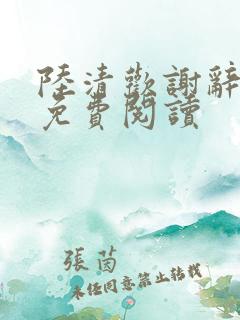 陸清歡謝辭
免費閱讀
張茵
未经同意禁止转载